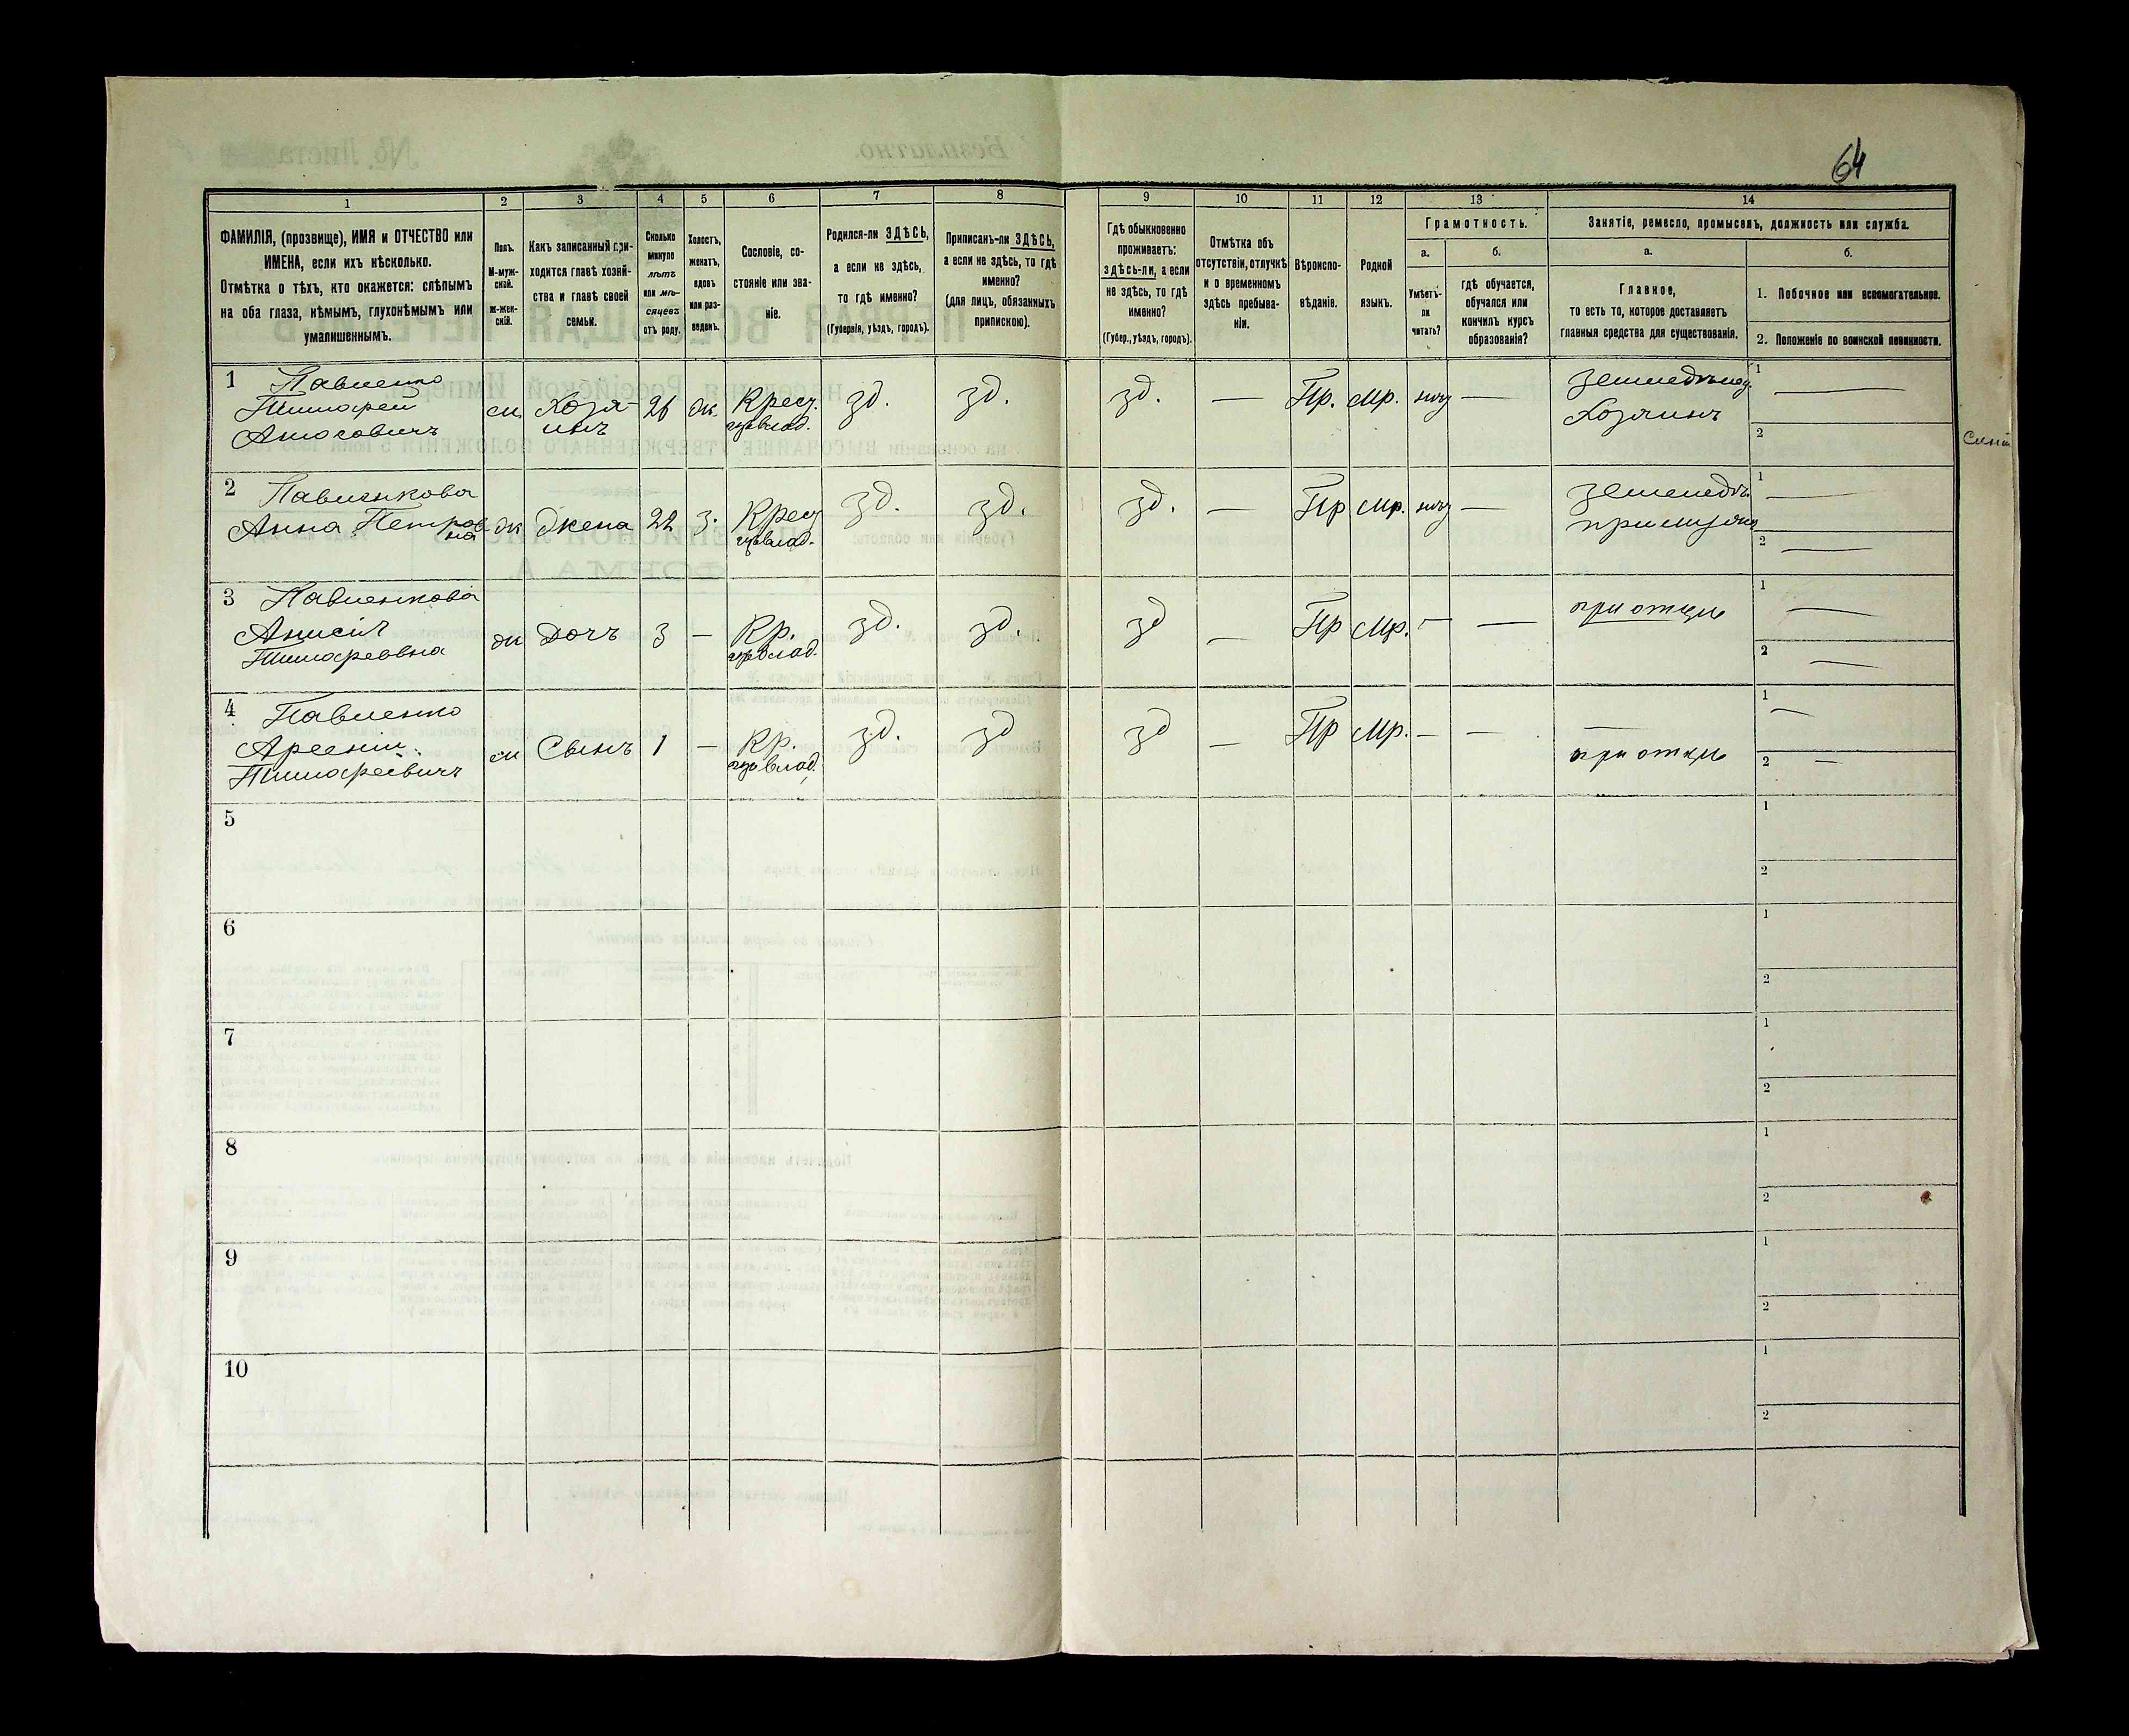 64
1
2
3
4
5
6
7
8
ФАМИЛІЯ, (прозвище), ИМЯ и ОТЧЕСТВО или
ИМЕНА, если ихъ нѣсколько.
Отмѣтка о тѣхъ, кто окажется: слѣпымъ
на оба глаза, нѣмымъ, глухонѣмымъ или
умалишеннымъ.
Полъ.
М-муж-
ской.
Ж-жен-
скій.
Какъ записанный при-
ходится главѣ хозяй-
ства и главѣ своей
семьи.
Сколько
минуло
лѣтъ
или мѣ-
сяцевъ
отъ роду.
Холостъ,
женатъ,
вдовъ
или раз-
веденъ.
Сословіе, со-
стояніе или зва-
ніе.
Родился-ли ЗДѢСЬ,
а если не здѣсь,
то гдѣ именно?
(Губернія, уѣздъ, городъ).
Приписанъ-ли ЗДѢСЬ,
а если не здѣсь, то гдѣ
именно?
(для лицъ, обязанныхъ
припискою).
9
10
11
12
13
14
Гдѣ обыкновенно
проживаетъ:
здѣсь-ли, а если
не здѣсь, то гдѣ
именно?
(Губер., уѣздъ, городъ).
Отмѣтка объ
отсутствіи, отлучкѣ
и о временномъ
здѣсь пребыва-
ніи.
Вѣроиспо-
вѣданіе.
Родной
языкъ.
Грамотность.
а.
б.
Умѣетъ-
ли
читать?
гдѣ обучается,
обучался или
кончилъ курсъ
образованія?
Занятіе, ремесло, промыселъ, должность или служба.
а.
б.
Главное,
то есть то, которое доставляетъ
главныя средства для существованія.
1. Побочное или вспомогательное.
2. Положеніе по воинской повинности.
1 Павленко
Тимофей
м Хозя- 26 ж. Крест. зд. зд. зд. — Пр. Мр. —
инъ
Хозяинъ
1 —
2
2 Павленкова
Анна Петров-
на
ж Жена 22 з. Крест зд. зд. зд. — Пр Мр. —
1 —
2 —
3 Павленкова
Анисія
Тимофеевна
ж Дочь 3 — Кр. зд. зд. зд — Пр Мр. — — при отцѣ
1 —
2 —
4 Павленко
Арсеній
Тимофеевичъ
м Сынъ 1 — Кр. зд. зд зд — Пр Мр. — — —
при отцѣ
1 —
2 —
5
1
2
6
1
2
7
1
2
8
1
2
9
1
2
10
1
2